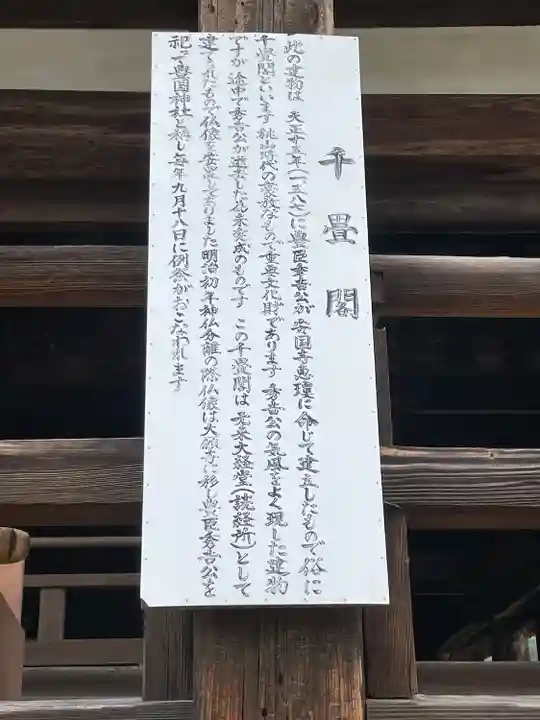 千畳閣
此の建物は 天正十五年(一五八七)に豊臣秀吉公が安国寺恵瓊に命じて建立したもので俗に
千畳閣といいます 桃山時代の豪放なもので重要文化財であります 秀吉公の気風をよく現した建物
ですが 途中で秀吉公が逝去した為未完成のものです この千畳閣は 元来大経堂(読経所)として
建てられたもので仏像を安置してありました 明治初年神仏分離の際仏像は大願寺に移し豊臣秀吉公を
祀って豊国神社と称し毎年九月十八日に例祭がおこなわれます